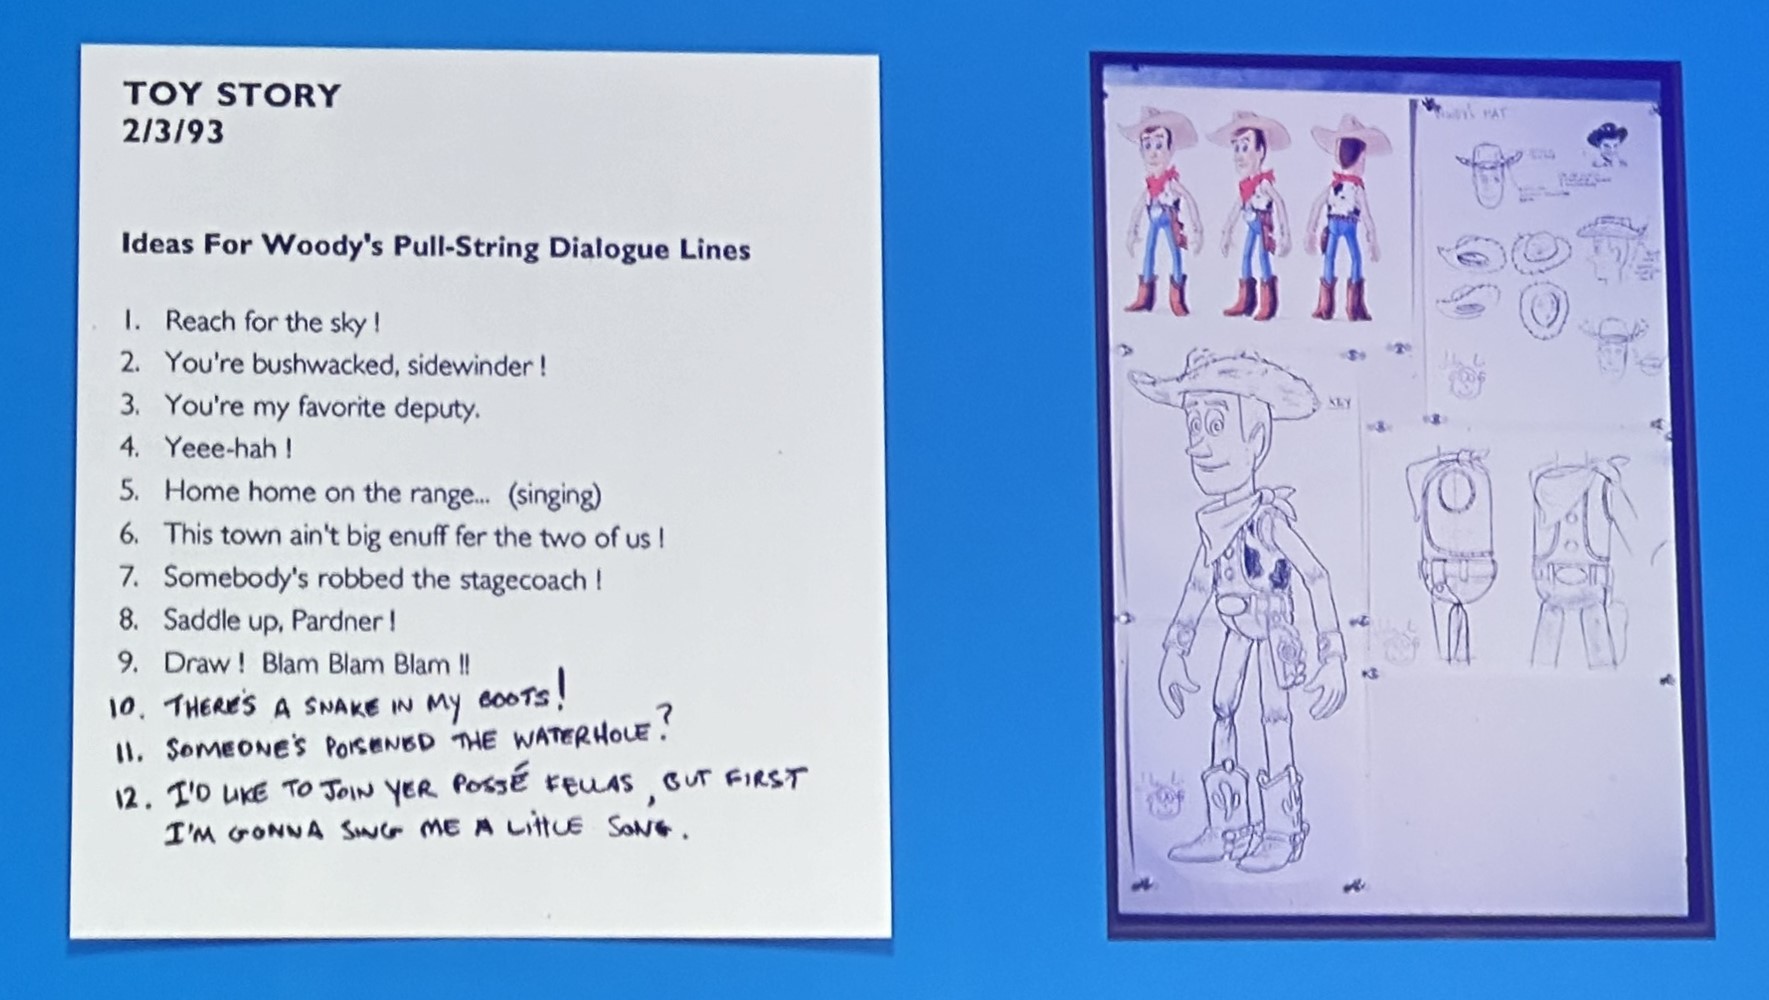 TOY STORY
2/3/93
Ideas For Woody's Pull-String Dialogue Lines
1. Reach for the sky !
2. You're bushwacked, sidewinder !
3. You're my favorite deputy.
4. Yeee-hah !
5. Home home on the range... (singing)
6. This town ain't big enuff fer the two of us !
7. Somebody's robbed the stagecoach !
8. Saddle up, Pardner !
9. Draw ! Blam Blam Blam !!
10. THERE'S A SNAKE IN MY BOOTS!
11. SOMEONE'S POISENED THE WATERHOLE?
12. I'D LIKE TO JOIN YER POSSÉ FELLAS, BUT FIRST
I'M GONNA SING ME A LITTLE SONG.
WOODY'S HAT
KEY